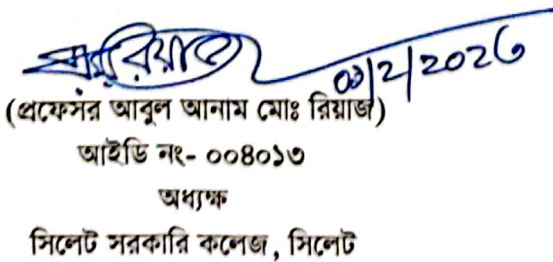 ০১/2/2026
(প্রফেসর আবুল আনাম মোঃ রিয়াজ)
আইডি নং- ০০৪০১৩
অধ্যক্ষ
সিলেট সরকারি কলেজ, সিলেট